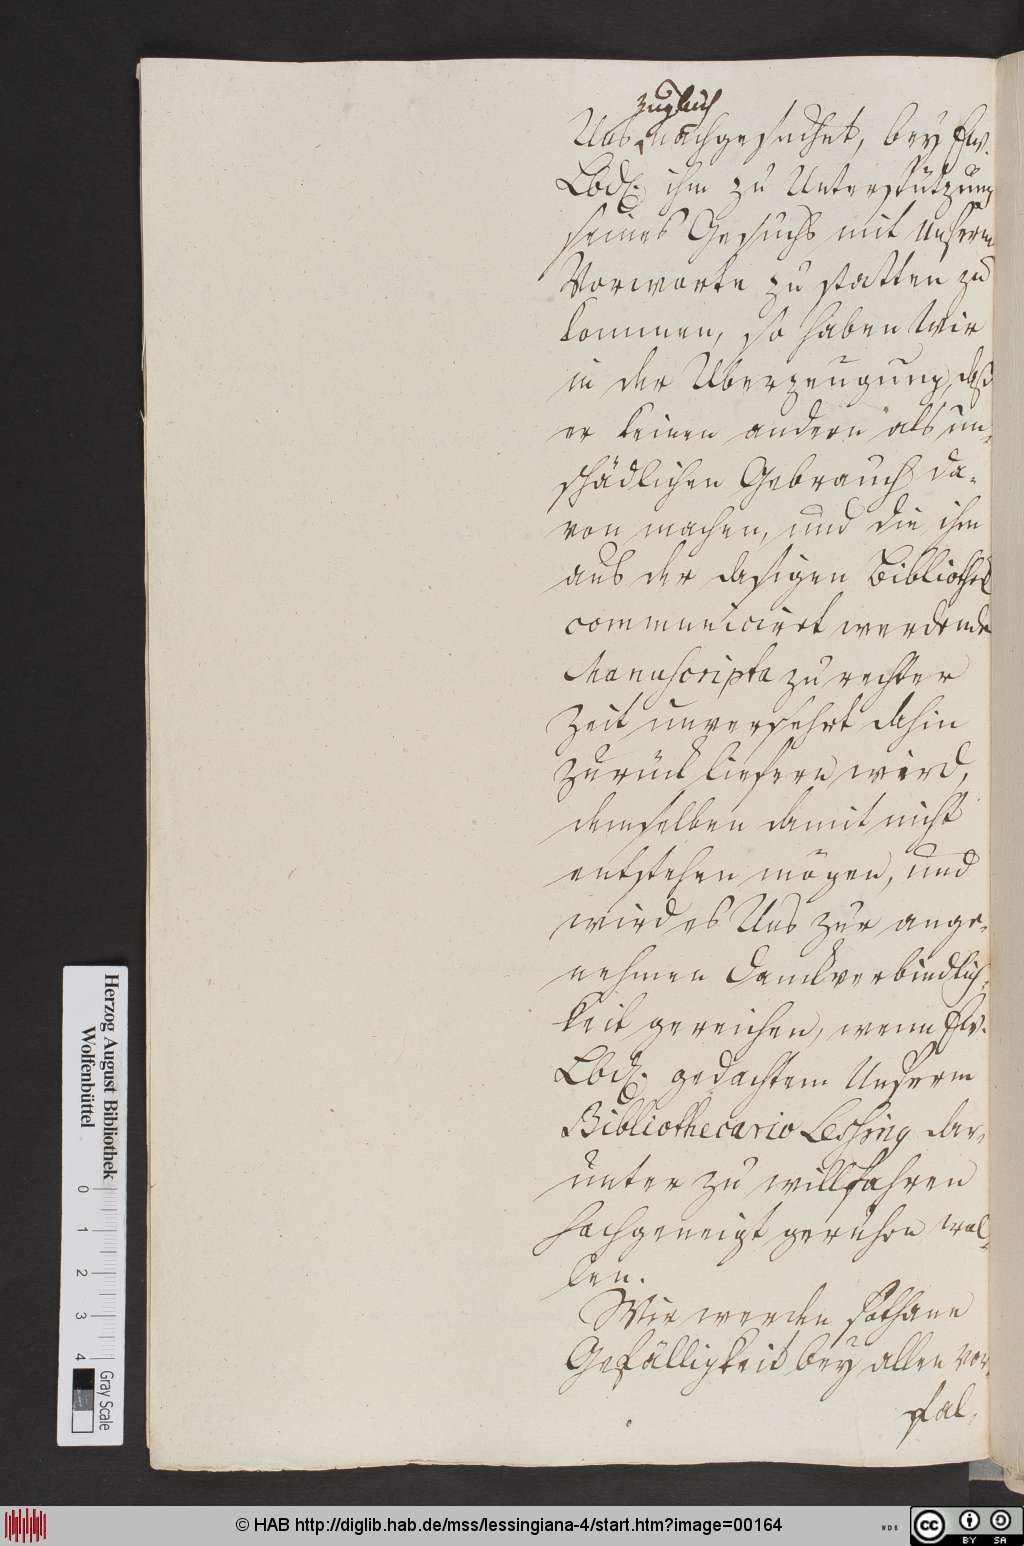 zugleich
Uns nachgesuchet, bey Ew.
Lbd. ihm zu Unterstützung
seines Gesuchs mit Unserm
Vorworte zu statten zu
kommen, so haben Wir
in der Uberzeugung, daß
er keinen andern als un-
schädlichen Gebrauch da-
von machen, und die ihm
aus der dasigen Bibliothek
communicirt werdende
Manuscripta zu rechter
Zeit unversehrt dahin
zurück liefern wird,
demselben damit nicht
entstehen mögen, und
wird es Uns zur ange-
nehmen Danckverbindlich-
keit gereichen, wenn Ew.
Lbd. gedachtem Unserm
Bibliothecario Lessing dar-
unter zu willfahren
hochgeneigt geruhen wol-
len.
Wir werden sothane
Gefälligkeit bey allen Vor-
fal-
Herzog August Bibliothek
Wolfenbüttel
0 1 2 3 4
Gray Scale
© HAB http://diglib.hab.de/mss/lessingiana-4/start.htm?image=00164
cc BY SA